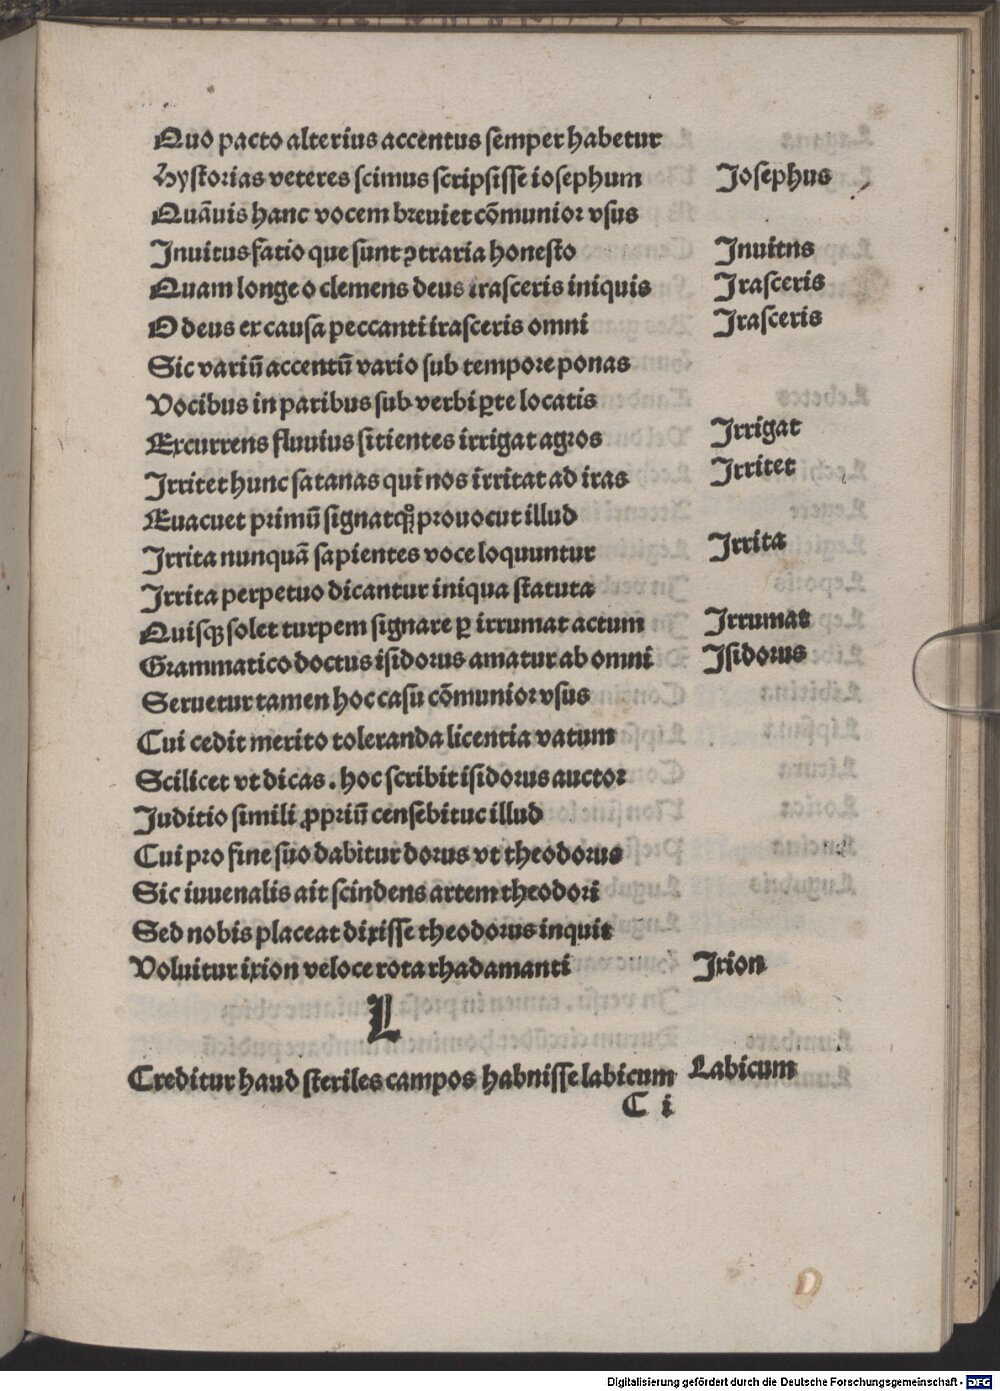 Quo pacto alterius accentus semper habetur
Hystorias veteres scimus scripsisse iosephum Josephus
Quāuis hanc vocem breuiet cōmunior vsus
Inuitus fatio que sunt ꝯtraria honesto Inuitns
Quam longe o clemens deus irasceris iniquis Irasceris
O deus ex causa peccanti irasceris omni Irasceris
Sic variū accentū vario sub tempore ponas
Vocibus in paribus sub verbi ꝑte locatis
Excurrens fluuius sitientes irrigat agros Irrigat
Irritet hunc satanas qui nos irritat ad iras Irritet
Euacuet primū signatqꝫ prouocut illud
Irrita nunquā sapientes voce loquuntur Irrita
Irrita perpetuo dicantur iniqua statuta
Quisqꝫ solet turpem signare ꝑ irrumat actum Irrumat
Grammatico doctus isidorus amatur ab omni Isidorus
Seruetur tamen hoc casu cōmunior vsus
Cui cedit merito toleranda licentia vatum
Scilicet vt dicas. hoc scribit isidorus auctor
Juditio simili ꝓpriū censebituc illud
Cui pro fine suo dabitur dorus vt theodorus
Sic iuuenalis ait scindens artem theodori
Sed nobis placeat dixisse theodorus inquit
Voluitur ixion veloce rota rhadamanti Ixion
L
Creditur haud steriles campos habnisse labicum Labicum
C i
Digitalisierung gefördert durch die Deutsche Forschungsgemeinschaft - DFG